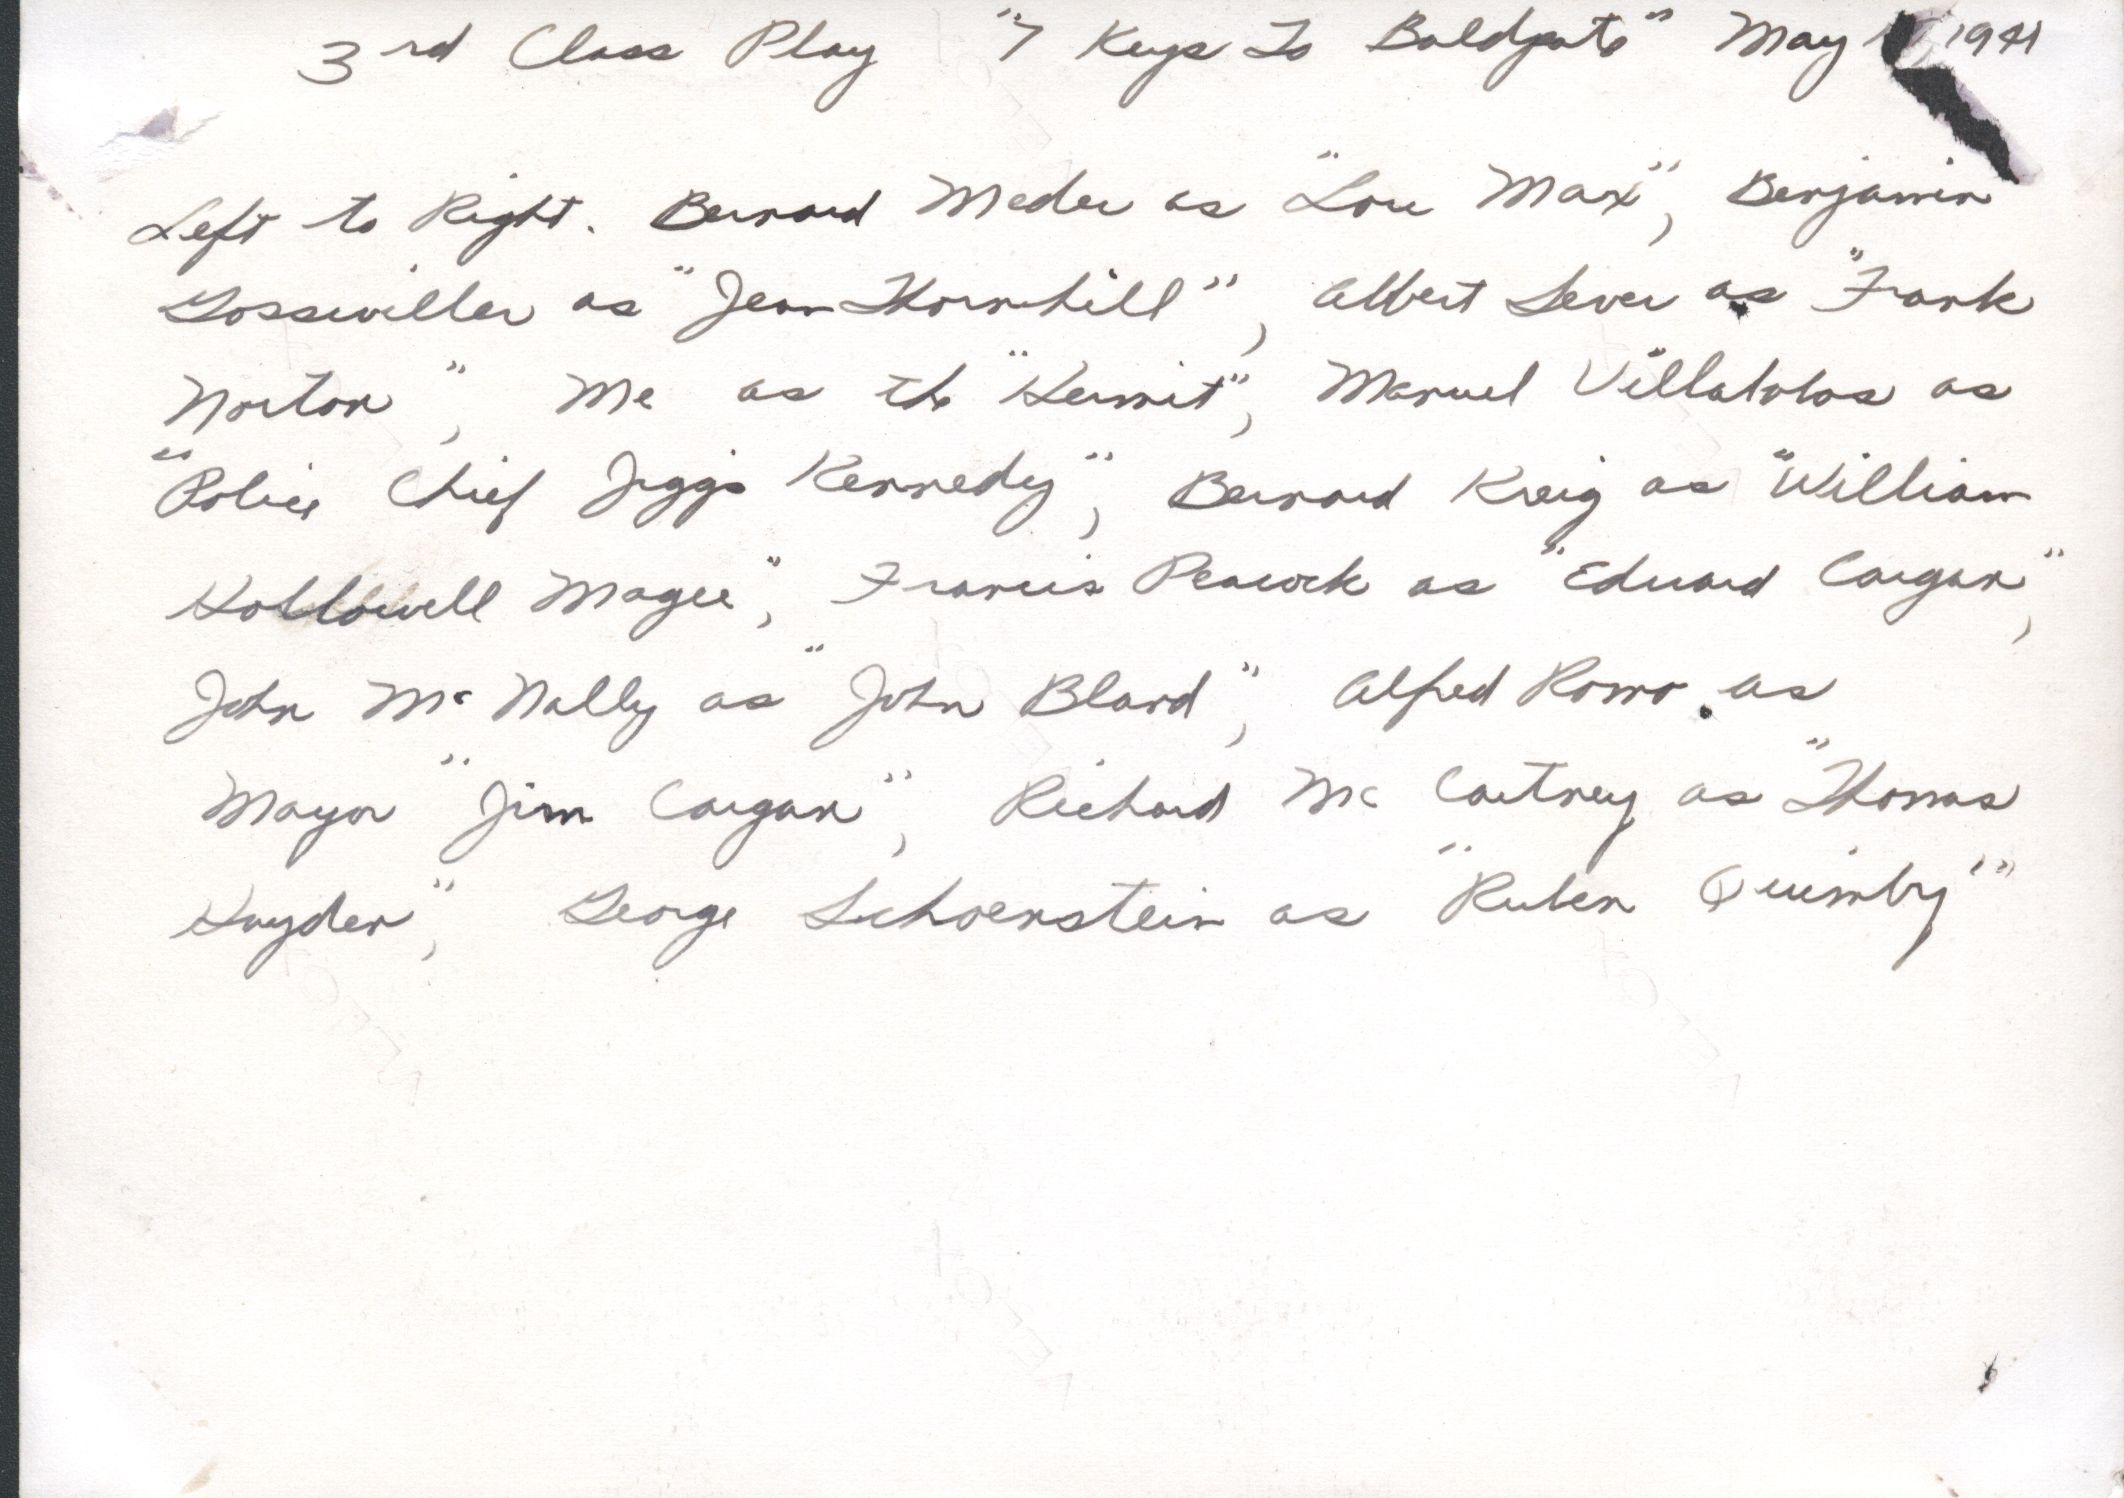 3rd Class Play "7 Keys To Baldpate" May 1941
Left to Right. Bernard Meder as "Lou Max", Benjamin
Gosswiller as "Jean Thornhill", Albert Lever as "Frank
Norton", Me as the "Hermit", Manuel Villalobos as
"Police Chief Jiggs Kennedy", Bernard Kreig as "William
Hollowell Magee", Francis Peacock as "Edward Cargan",
John McNally as "John Bland", Alfred Romo as
Mayor "Jim Cargan", Richard McCartney as "Thomas
Hayden", George Schoenstein as "Ruben Quimby"